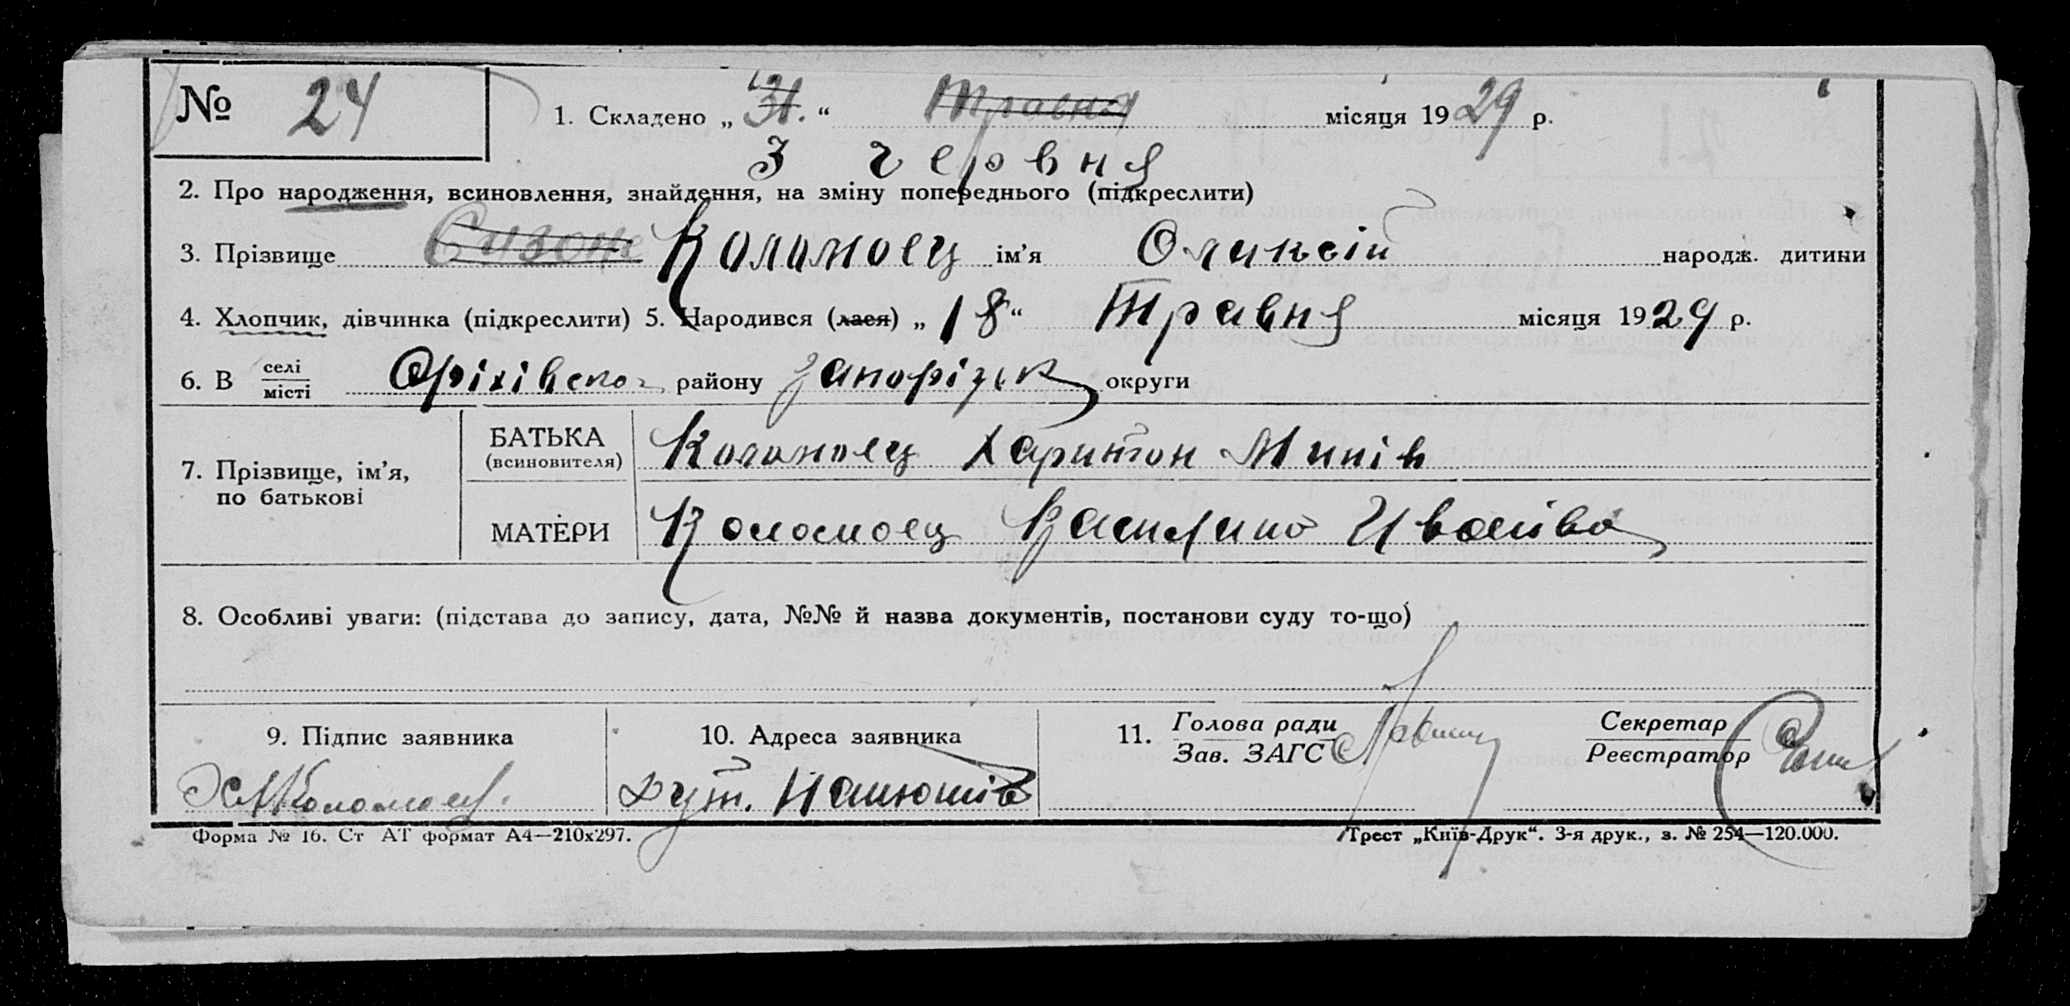 № 24
1. Складено „31.“ Травня місяця 1929 р.
3 червня
2. Про народження, всиновлення, знайдення, на зміну попереднього (підкреслити)
3. Прізвище Коломоец ім'я Оликсій народж. дитини
4. Хлопчик, дівчинка (підкреслити) 5. Народився (лася) „18“ Травня місяця 1929 р.
6. В селі/місті Оріхівськог району Запорізьк округи
7. Прізвище, ім'я, по батькові
БАТЬКА (всиновителя) Коломоец Харитон
МАТЕРИ Коломоец Василина Ивонівна
8. Особливі уваги: (підстава до запису, дата, №№ й назва документів, постанови суду то-що)
9. Підпис заявника
Х Коломоец.
10. Адреса заявника
хут.
11. Голова ради
Зав. ЗАГС
Секретар
Реєстратор
Форма № 16. Ст АТ формат А4—210x297.
Трест „Київ-Друк“. 3-я друк., з. № 254—120.000.